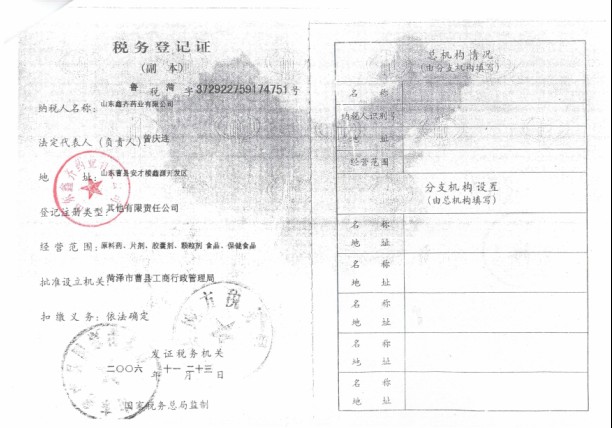 税务登记证
(副 本)
鲁 菏
税 字372922759174751号
纳税人名称:山东鑫齐药业有限公司
法定代表人(负责人)曾庆连
地 址:山东曹县安才楼鑫源开发区
登记注册类型:其他有限责任公司
经营范围:原料药、片剂、胶囊剂、颗粒剂 食品、保健食品
批准设立机关:菏泽市曹县工商行政管理局
扣缴义务:依法确定
发证税务机关
二〇〇六 年 十一 月 二十三 日
国家税务总局监制
总机构情况
(由分支机构填写)
名 称
纳税人识别号
地 址
经营范围
分支机构设置
(由总机构填写)
名 称
地 址
名 称
地 址
名 称
地 址
名 称
地 址
名 称
地 址